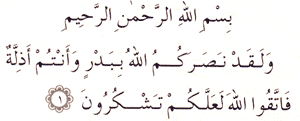 بِسْمِ اللهِ الرَّحْمٰنِ الرَّحِيمِ
وَلَقَدْ نَصَرَكُمُ اللهُ بِبَدْرٍ وَأَنْتُمْ أَذِلَّةٌ
فَاتَّقُوا اللهَ لَعَلَّكُمْ تَشْكُرُونَ ١